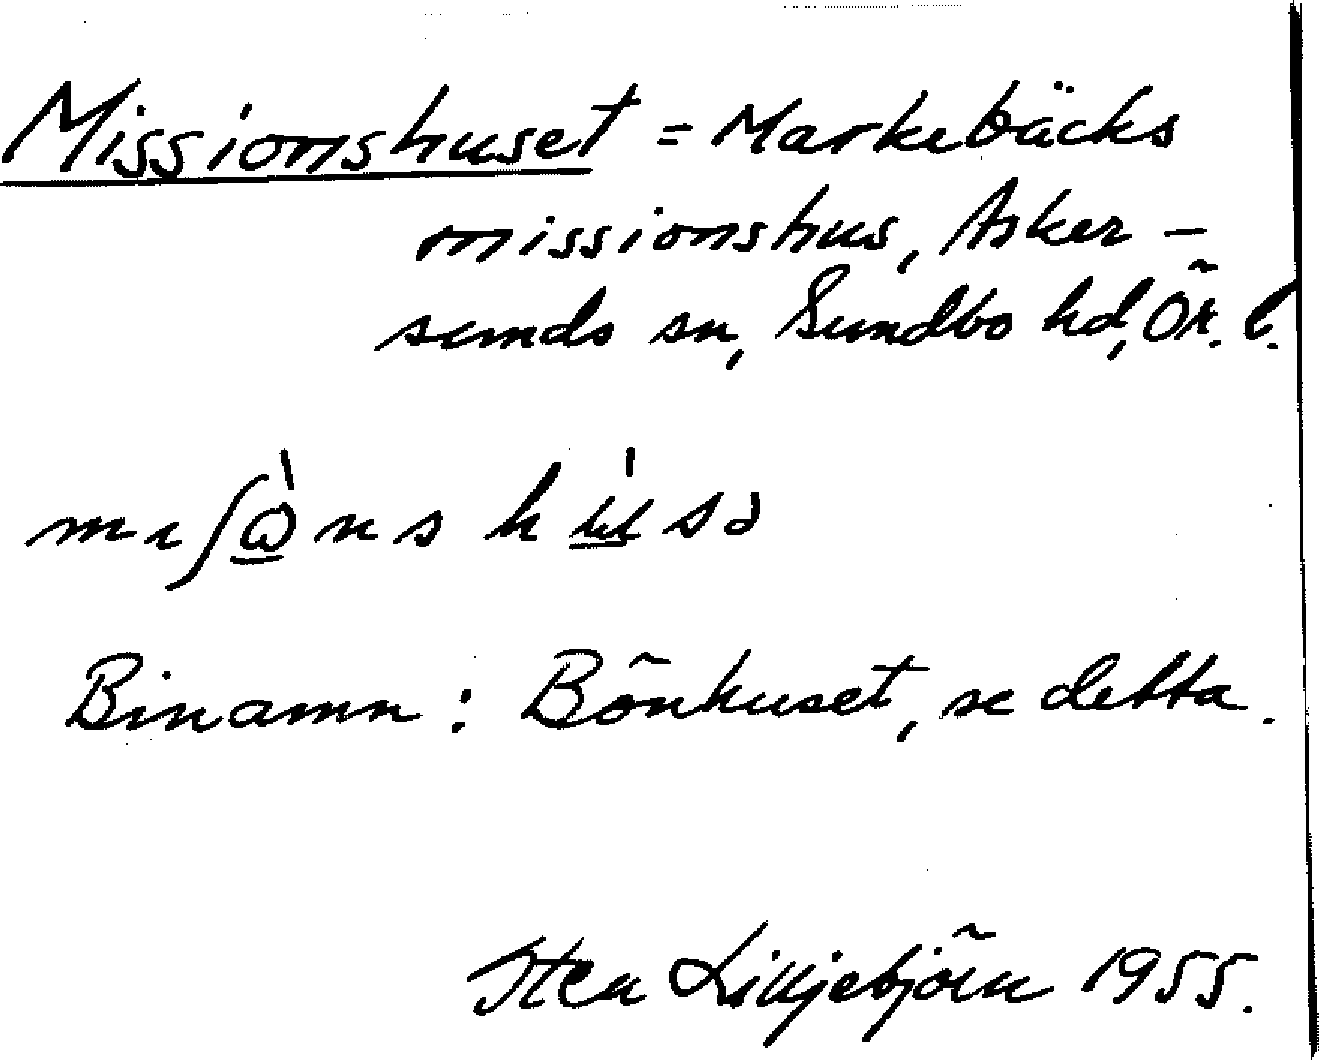 Missionshuset = Markebäcks
missionshus, Asker-
sunds sn, Sundbo hd, Ör. l.
Binamn: Bönhuset, se detta.
Sten Lilljebjörn 1955.